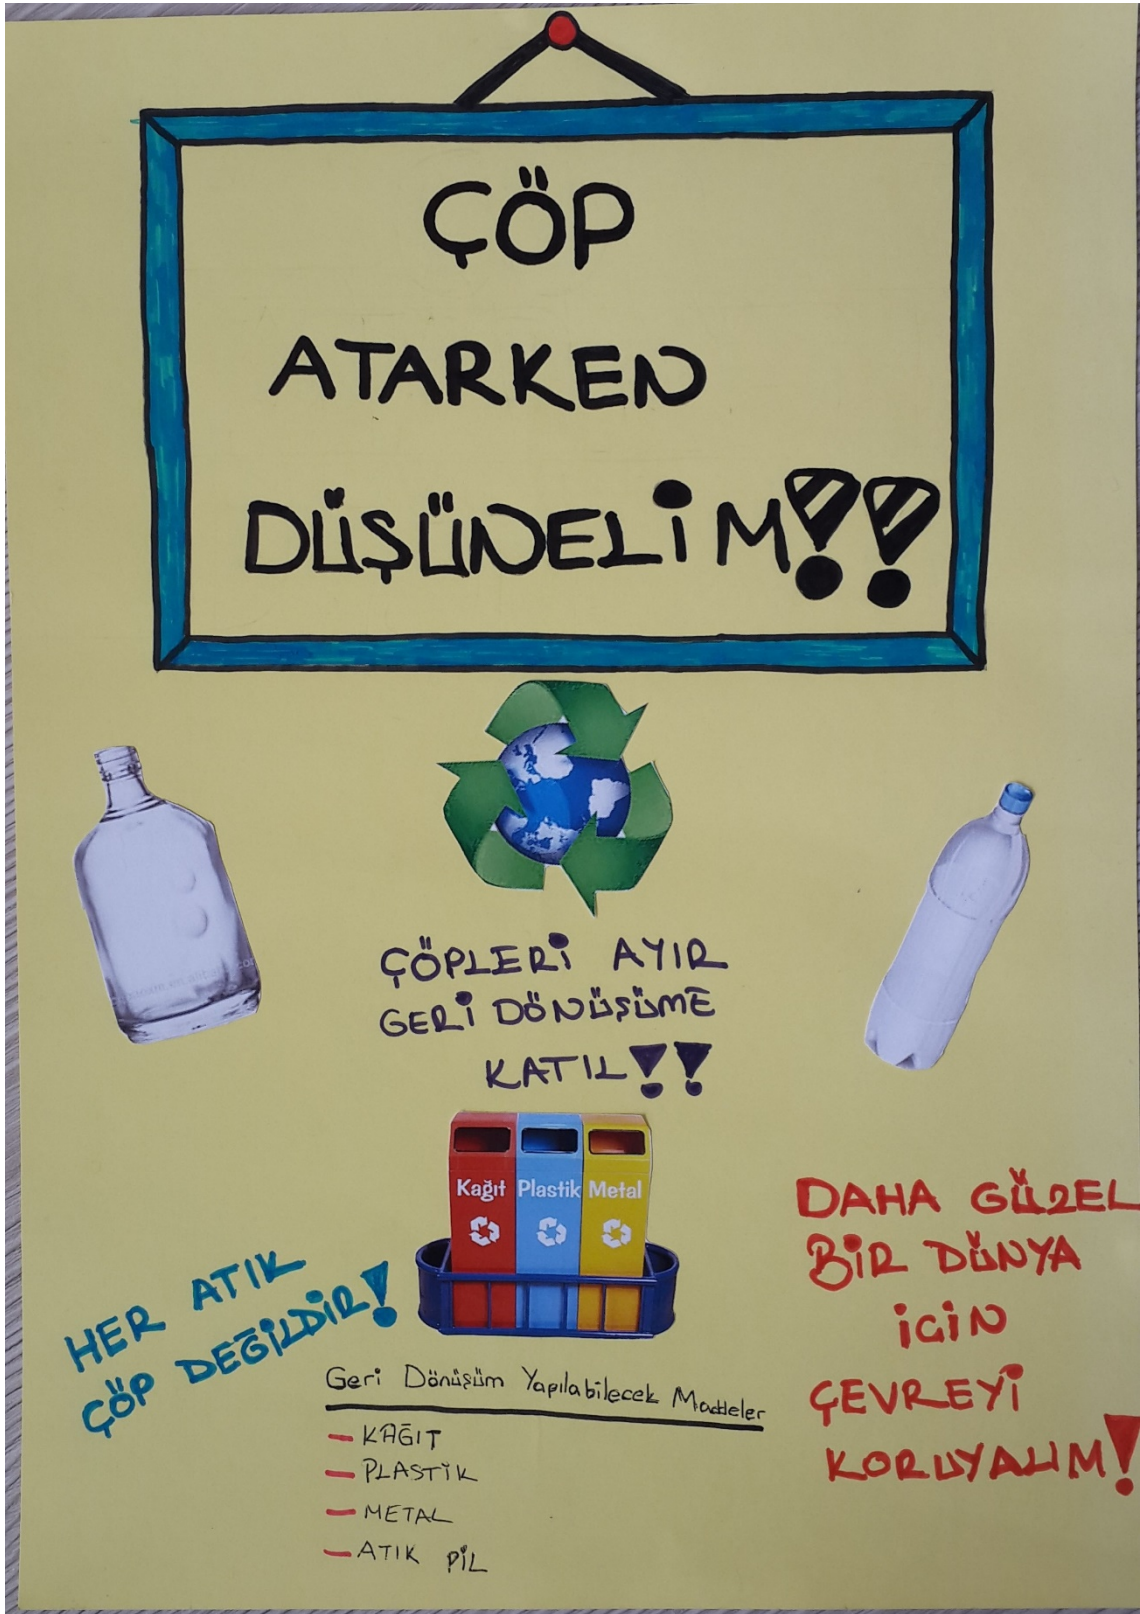 ÇÖP
ATARKEN
DÜŞÜNELİM!!
ÇÖPLERİ AYIR
GERİ DÖNÜŞÜME
KATIL!!
Kağıt Plastik Metal
HER ATIK
ÇÖP DEĞİLDİR!
DAHA GÜZEL
BİR DÜNYA
İÇİN
ÇEVREYİ
KORUYALIM!
Geri Dönüşüm Yapılabilecek Maddeler
– KAĞIT
– PLASTİK
– METAL
– ATIK PİL